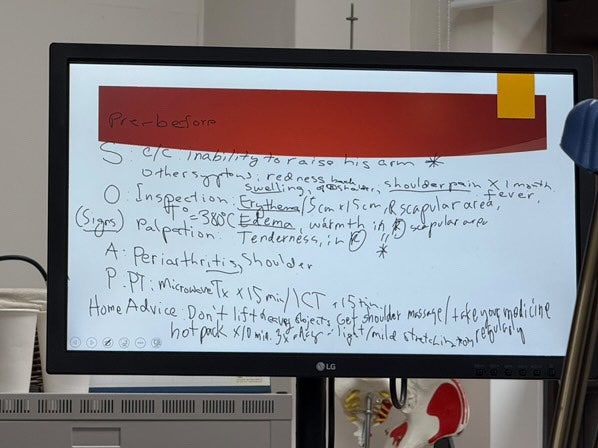 Pre-before
S: c/c. inability to raise his arm *
other symptoms: redness back
swelling, shoulder pain X 1 month
fever.
O: Inspection: Erythema/5cm x 15cm, R scapular area,
(Signs) T°=38°C Edema, warmth in R scapular area
Palpation: Tenderness, in R "
*
A: Periarthritis, Shoulder
P: PT: Microwave Tx x 15 min/ICT x 15 min.
Home Advice: Don't lift heavy objects Get shoulder massage/take your medicine
hot pack x10 min. 3x a day - light/mild stretching regularly
LG